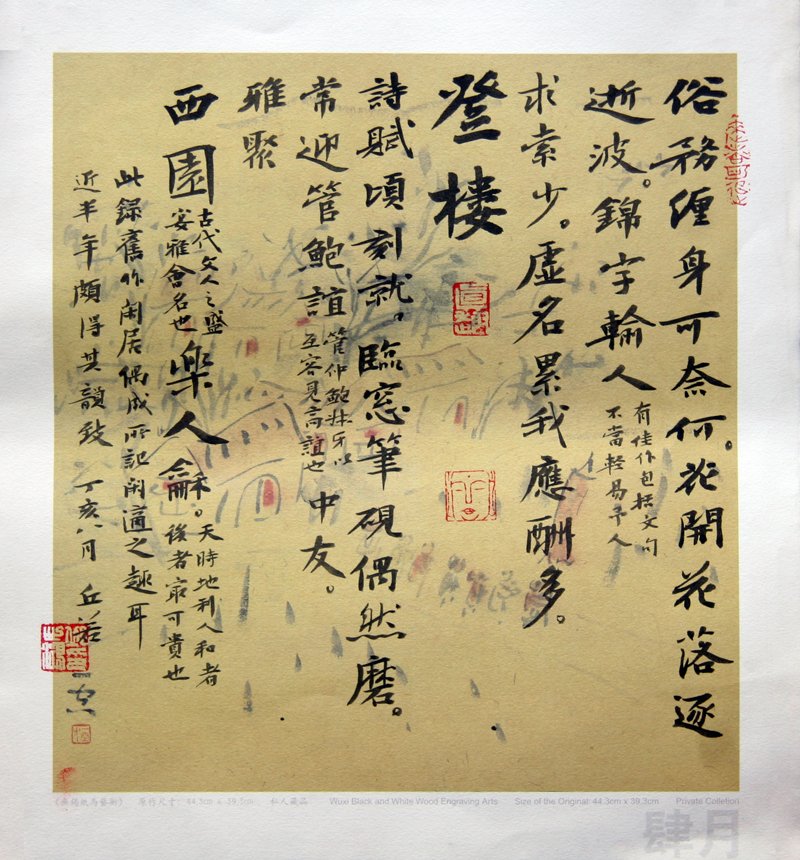 俗務缠身可奈何。花開花落逐
逝波。錦字輸人
有佳作包括文句
不當輕易予人
求索少。虛名累我應酬多。
登樓
詩賦頃刻就。臨窓筆硯偶然磨。
常迎管鮑誼
管仲鮑叔牙以
互容見高誼也
中友。
雅聚
西園
古代文人之盛
宴雅會名也
樂人龢。
天時地利人和者
後者最可貴也
此錄舊作閑居偶成所記閑適之趣耳
近半年頗得其韻致 丁亥八月 丘
《無錫紙馬藝術》 原作尺寸: 44.3cm x 39.3cm 私人藏品 Wuxi Black and White Wood Engraving Arts Size of the Original: 44.3cm x 39.3cm Private Colletion
肆月